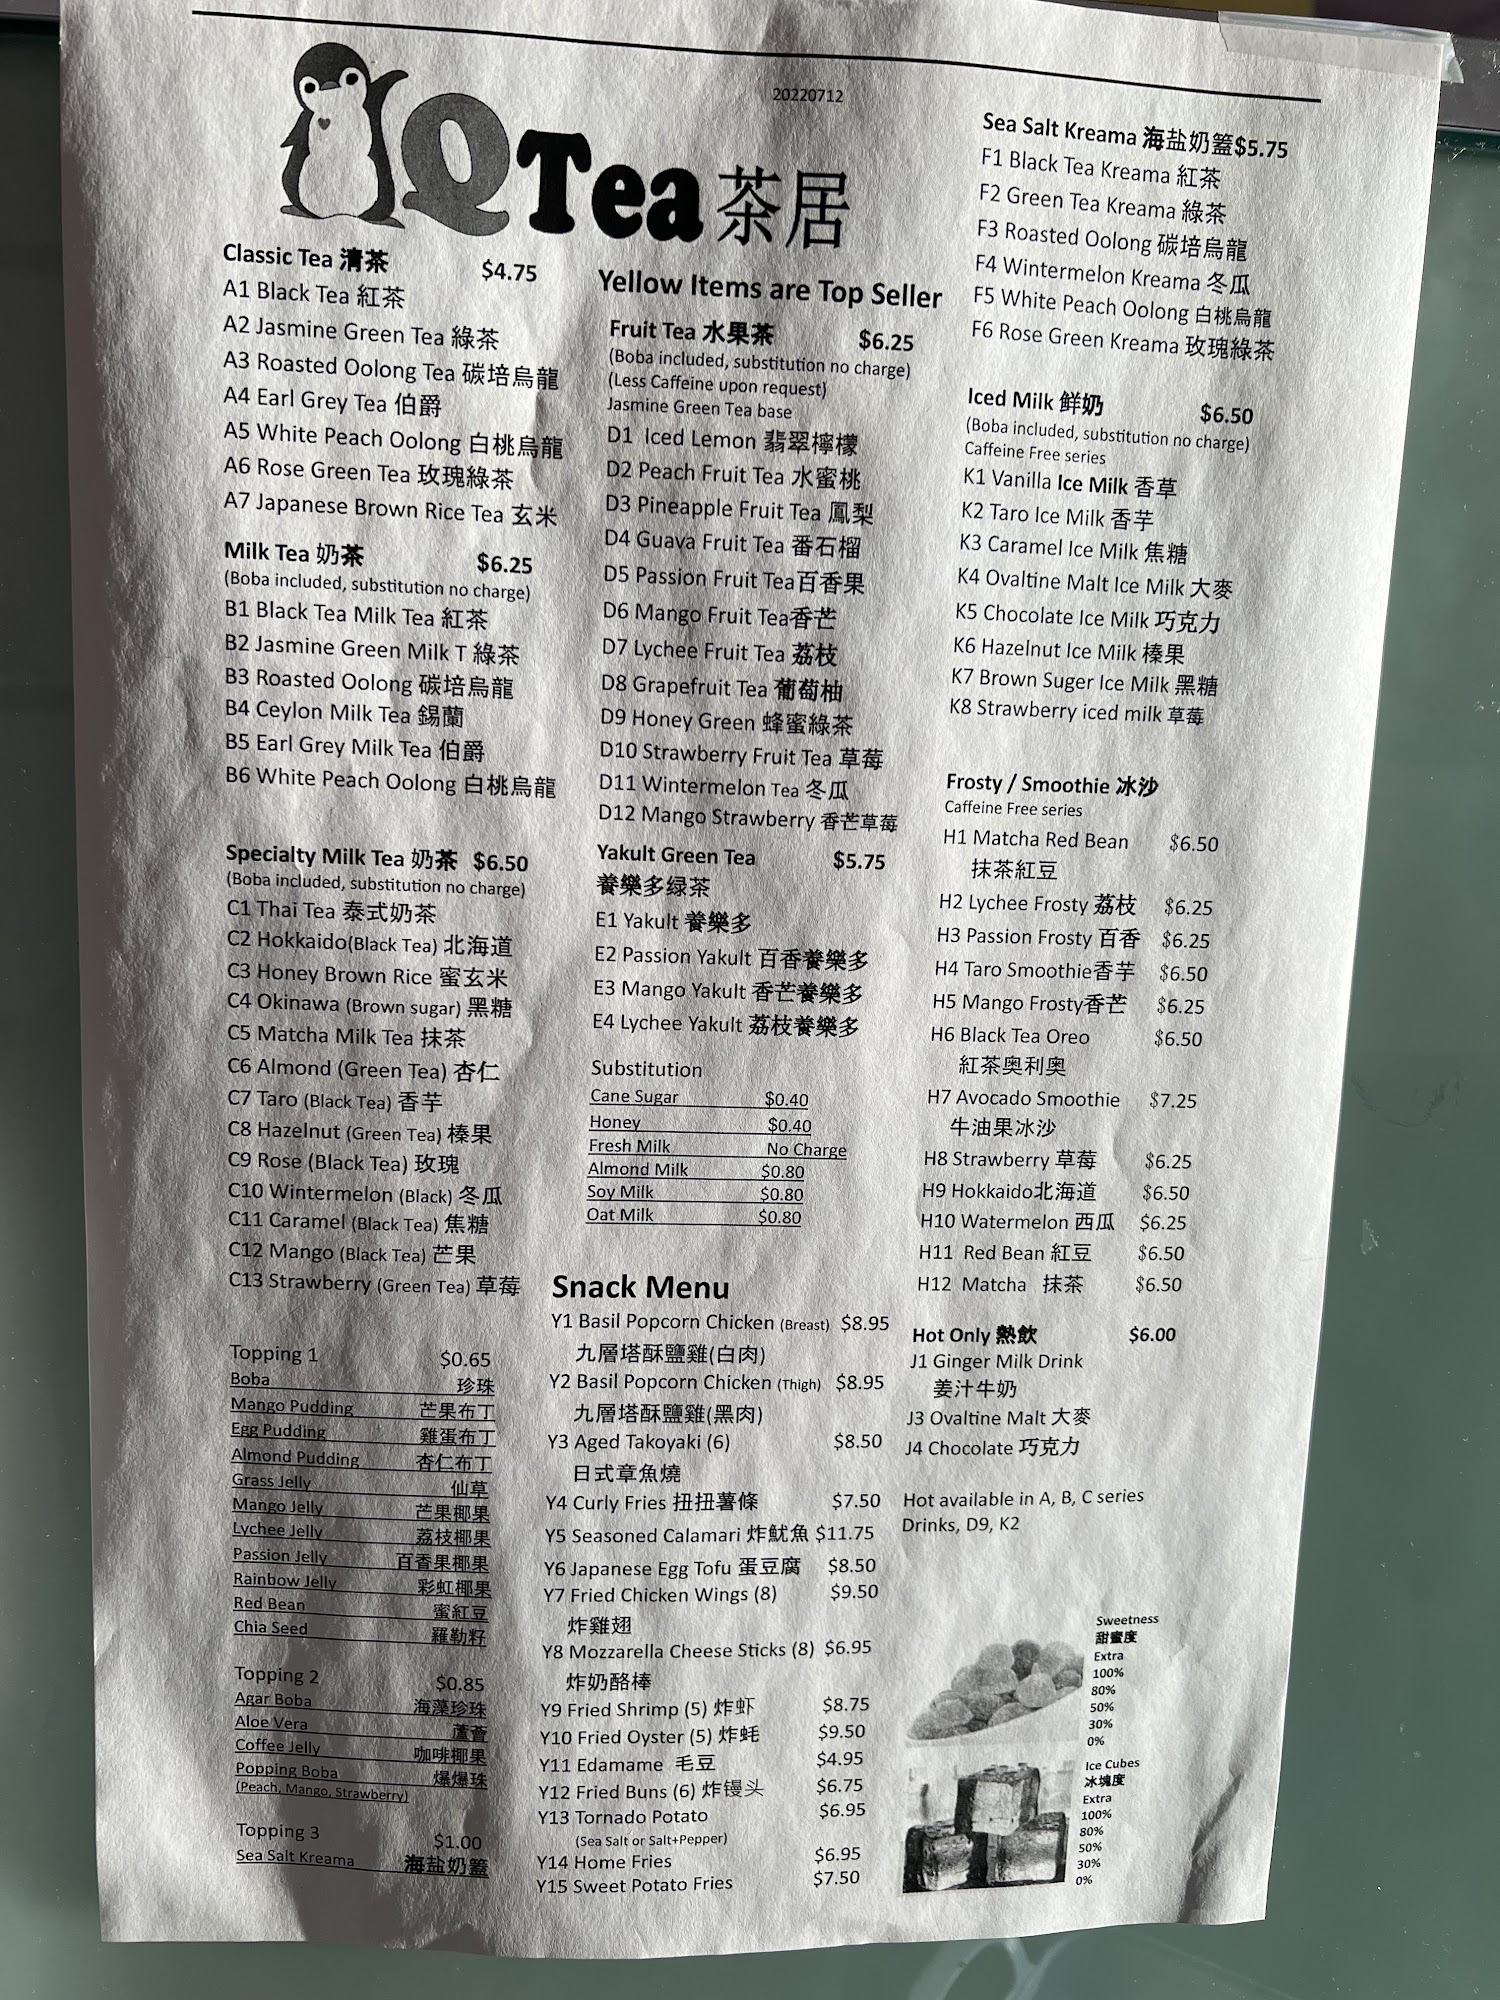 20220712
QTea 茶居
Classic Tea 清茶 $4.75
A1 Black Tea 紅茶
A2 Jasmine Green Tea 綠茶
A3 Roasted Oolong Tea 碳培烏龍
A4 Earl Grey Tea 伯爵
A5 White Peach Oolong 白桃烏龍
A6 Rose Green Tea 玫瑰綠茶
A7 Japanese Brown Rice Tea 玄米
Milk Tea 奶茶 $6.25
(Boba included, substitution no charge)
B1 Black Tea Milk Tea 紅茶
B2 Jasmine Green Milk T 綠茶
B3 Roasted Oolong 碳培烏龍
B4 Ceylon Milk Tea 錫蘭
B5 Earl Grey Milk Tea 伯爵
B6 White Peach Oolong 白桃烏龍
Specialty Milk Tea 奶茶 $6.50
(Boba included, substitution no charge)
C1 Thai Tea 泰式奶茶
C2 Hokkaido(Black Tea) 北海道
C3 Honey Brown Rice 蜜玄米
C4 Okinawa (Brown sugar) 黑糖
C5 Matcha Milk Tea 抹茶
C6 Almond (Green Tea) 杏仁
C7 Taro (Black Tea) 香芋
C8 Hazelnut (Green Tea) 榛果
C9 Rose (Black Tea) 玫瑰
C10 Wintermelon (Black) 冬瓜
C11 Caramel (Black Tea) 焦糖
C12 Mango (Black Tea) 芒果
C13 Strawberry (Green Tea) 草莓
Topping 1 $0.65
Boba 珍珠
Mango Pudding 芒果布丁
Egg Pudding 雞蛋布丁
Almond Pudding 杏仁布丁
Grass Jelly 仙草
Mango Jelly 芒果椰果
Lychee Jelly 荔枝椰果
Passion Jelly 百香果椰果
Rainbow Jelly 彩虹椰果
Red Bean 蜜紅豆
Chia Seed 羅勒籽
Topping 2 $0.85
Agar Boba 海藻珍珠
Aloe Vera 蘆薈
Coffee Jelly 咖啡椰果
Popping Boba 爆爆珠
(Peach, Mango, Strawberry)
Topping 3 $1.00
Sea Salt Kreama 海盐奶蓋
Yellow Items are Top Seller
Fruit Tea 水果茶 $6.25
(Boba included, substitution no charge)
(Less Caffeine upon request)
Jasmine Green Tea base
D1 Iced Lemon 翡翠檸檬
D2 Peach Fruit Tea 水蜜桃
D3 Pineapple Fruit Tea 鳳梨
D4 Guava Fruit Tea 番石榴
D5 Passion Fruit Tea百香果
D6 Mango Fruit Tea香芒
D7 Lychee Fruit Tea 荔枝
D8 Grapefruit Tea 葡萄柚
D9 Honey Green 蜂蜜綠茶
D10 Strawberry Fruit Tea 草莓
D11 Wintermelon Tea 冬瓜
D12 Mango Strawberry 香芒草莓
Yakult Green Tea $5.75
養樂多绿茶
E1 Yakult 養樂多
E2 Passion Yakult 百香養樂多
E3 Mango Yakult 香芒養樂多
E4 Lychee Yakult 荔枝養樂多
Substitution
Cane Sugar $0.40
Honey $0.40
Fresh Milk No Charge
Almond Milk $0.80
Soy Milk $0.80
Oat Milk $0.80
Snack Menu
Y1 Basil Popcorn Chicken (Breast) $8.95
九層塔酥鹽雞(白肉)
Y2 Basil Popcorn Chicken (Thigh) $8.95
九層塔酥鹽雞(黑肉)
Y3 Aged Takoyaki (6) $8.50
日式章魚燒
Y4 Curly Fries 扭扭薯條 $7.50
Y5 Seasoned Calamari 炸魷魚 $11.75
Y6 Japanese Egg Tofu 蛋豆腐 $8.50
Y7 Fried Chicken Wings (8) $9.50
炸雞翅
Y8 Mozzarella Cheese Sticks (8) $6.95
炸奶酪棒
Y9 Fried Shrimp (5) 炸虾 $8.75
Y10 Fried Oyster (5) 炸蚝 $9.50
Y11 Edamame 毛豆 $4.95
Y12 Fried Buns (6) 炸镘头 $6.75
Y13 Tornado Potato $6.95
(Sea Salt or Salt+Pepper)
Y14 Home Fries $6.95
Y15 Sweet Potato Fries $7.50
Sea Salt Kreama 海盐奶蓋$5.75
F1 Black Tea Kreama 紅茶
F2 Green Tea Kreama 綠茶
F3 Roasted Oolong 碳培烏龍
F4 Wintermelon Kreama 冬瓜
F5 White Peach Oolong 白桃烏龍
F6 Rose Green Kreama 玫瑰綠茶
Iced Milk 鮮奶 $6.50
(Boba included, substitution no charge)
Caffeine Free series
K1 Vanilla Ice Milk 香草
K2 Taro Ice Milk 香芋
K3 Caramel Ice Milk 焦糖
K4 Ovaltine Malt Ice Milk 大麥
K5 Chocolate Ice Milk 巧克力
K6 Hazelnut Ice Milk 榛果
K7 Brown Suger Ice Milk 黑糖
K8 Strawberry iced milk 草莓
Frosty / Smoothie 冰沙
Caffeine Free series
H1 Matcha Red Bean $6.50
抹茶紅豆
H2 Lychee Frosty 荔枝 $6.25
H3 Passion Frosty 百香 $6.25
H4 Taro Smoothie香芋 $6.50
H5 Mango Frosty香芒 $6.25
H6 Black Tea Oreo $6.50
紅茶奥利奥
H7 Avocado Smoothie $7.25
牛油果冰沙
H8 Strawberry 草莓 $6.25
H9 Hokkaido北海道 $6.50
H10 Watermelon 西瓜 $6.25
H11 Red Bean 紅豆 $6.50
H12 Matcha 抹茶 $6.50
Hot Only 熱飲 $6.00
J1 Ginger Milk Drink
姜汁牛奶
J3 Ovaltine Malt 大麥
J4 Chocolate 巧克力
Hot available in A, B, C series
Drinks, D9, K2
Sweetness
甜蜜度
Extra
100%
80%
50%
30%
0%
Ice Cubes
冰塊度
Extra
100%
80%
50%
30%
0%